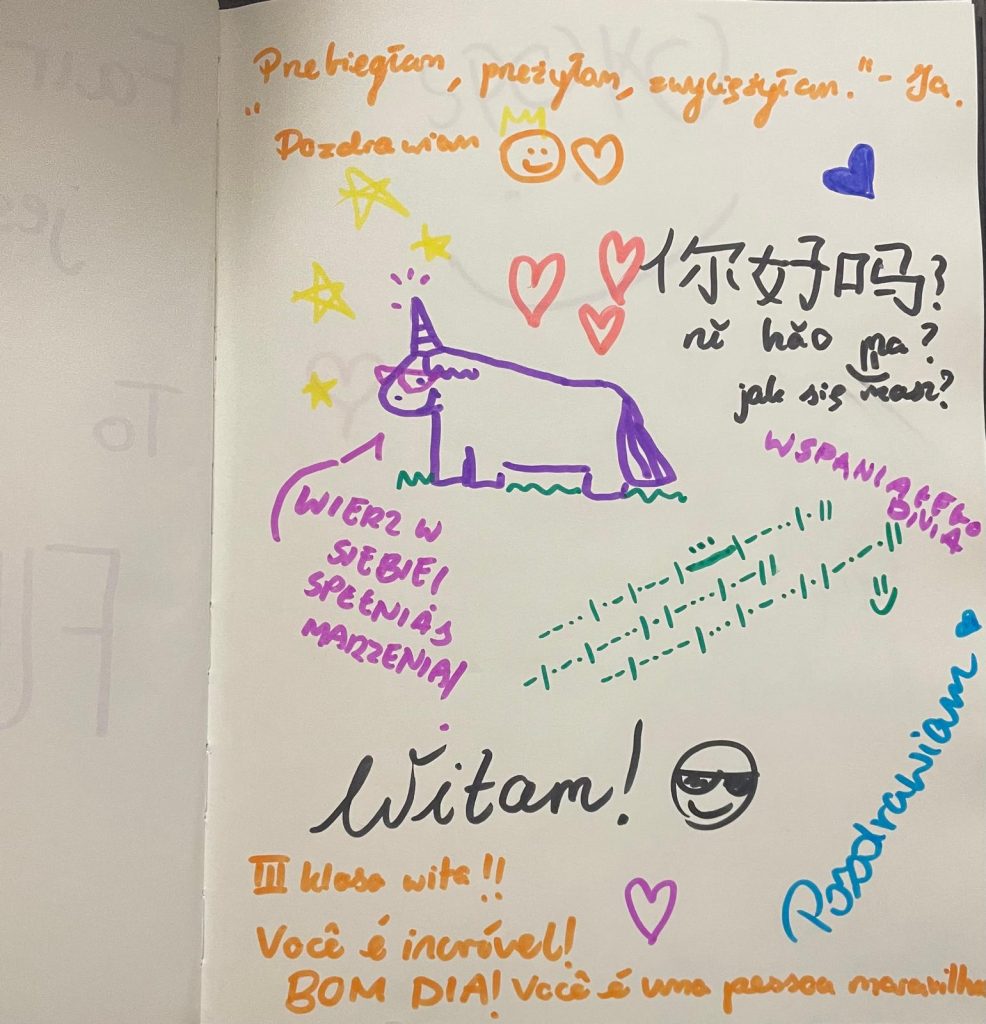 "Prebiegłam, preżyłam, zwyciężyłam." - Ja.
Pozdrawiam
你好吗?
nǐ hǎo ma?
jak się masz?
WSPANIAŁEGO
DNIA
WIERZ W
SIEBIE I
SPEŁNIAJ
MARZENIA!
Witam!
Pozdrawiam
III klasa wita!!
Você é incrível!
BOM DIA! Você é uma pessoa maravilho